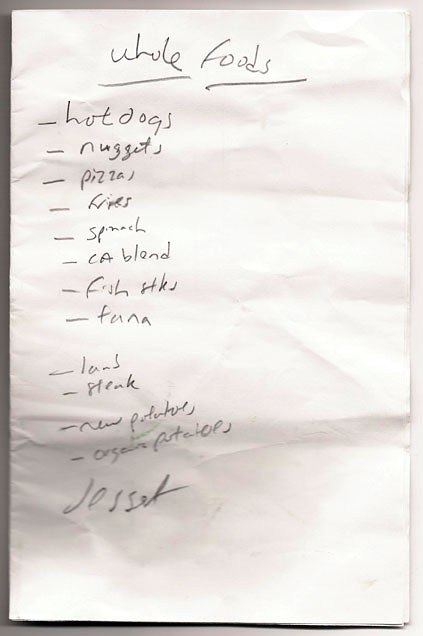 whole Foods
- hotdogs
- nuggets
- pizzas
- fries
- spinach
- CA blend
- fish stks
- tuna
- lamb
- steak
- new potatoes
- organic potatoes
Desset